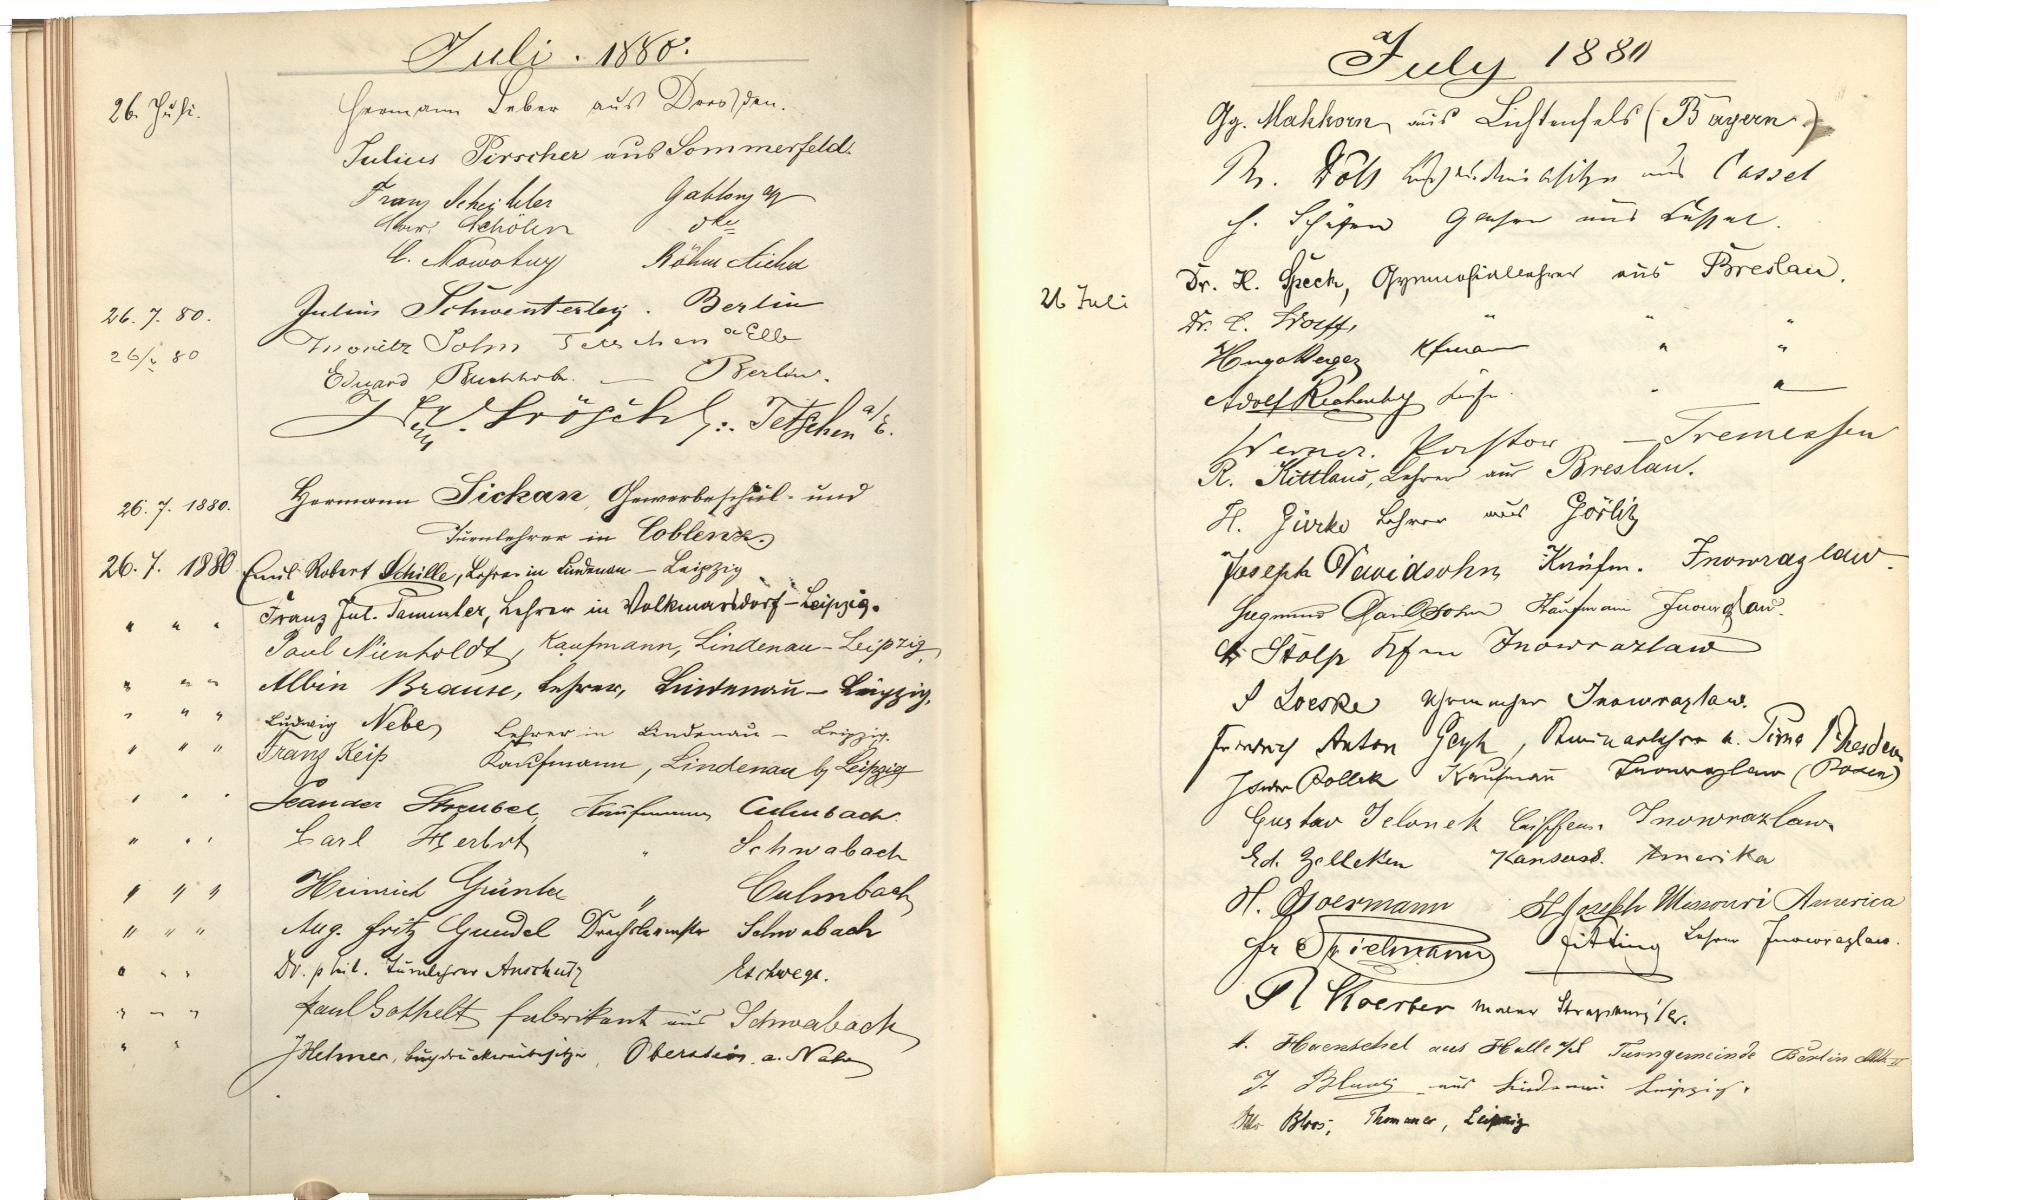 Juli. 1880.
26. Juli. Hermann Leber aus Dresden.
Julius Pirscher aus Sommerfeld.
Franz Scheibler Gablonz
Schöln
C. Nowotny Böhm Aicha
26. 7. 80. Julius Schwenterley. Berlin
26/7 80 Moritz Sohm Tetschen a Elb
Eduard Buchholz. — Berlin.
Fröschl Tetschen a/E.
26. 7. 1880. Hermann Sickan, Gewerbeschul- und
Turnlehrer in Coblenz.
26. 7. 1880 Emil Robert Schille, Lehrer in Lindenau – Leipzig
" " " Franz Jul. Tammler, Lehrer in Volkmarsdorf – Leipzig.
Paul Nienholdt, Kaufmann, Lindenau – Leipzig
" " " Albin Brause, Lehrer, Lindenau – Leipzig.
" " " Ludwig Nebe, Lehrer in Lindenau – Leipzig.
" " " Franz Keip Kaufmann, Lindenau b/ Leipzig
" " " Leander Streubel, Kaufmann, Culmbach.
" " " Carl Herbst " Schwabach
" " " Heinrich Günther " Culmbach
" " " Aug. Fritz Gundel Drechslermstr Schwabach
" " " Dr. phil. Turnlehrer Anschütz Eschwege.
" " " Paul Gothelt Fabrikant aus Schwabach
" " J Helmer, Buchdruckereibesitzer, Oberstein a. Nahe
July 1880
Gg. Mahkorn aus Lichtenfels (Bayern)
Th. Döll aus Cassel
H. Schäfer aus Cassel.
Dr. H. Speck, Gymnasiallehrer aus Breslau.
26 Juli Dr. E. Wolff, " " "
Hugo Herger Kfmann " "
Adolf Richenberg " "
Werner. Porstow – Tremessen
R. Kittlaus, Lehrer aus Breslau.
H. Gierke Lehrer aus Görlitz
Joseph Dawidsohn, Kaufm. Inowrazlaw.
Siegmund Davidsohn Kaufmann Inowrazlaw.
Stolp Kfm Inowrazlaw
S Loeske Uhrmacher Inowrazlaw.
Friedrich Anton Geyh, Seminarlehrer a. Pirna Dresden
Isidor Pollack Kaufmann Inowrazlaw (Posen)
Gustav Jelonek Inowrazlaw.
Ed. Zelleken Kansas. Amerika
H. Boermann St Joseph Missouri America
Fr Thielmann Fitting Lehrer Inowrazlaw.
R Koerber Maler Strassburg i/E.
A. Haenschel aus Halle a/S Turngemeinde Berlin
J. aus Lindenau Leipzig.
Otto Bloos, Thonmaer, Leipzig